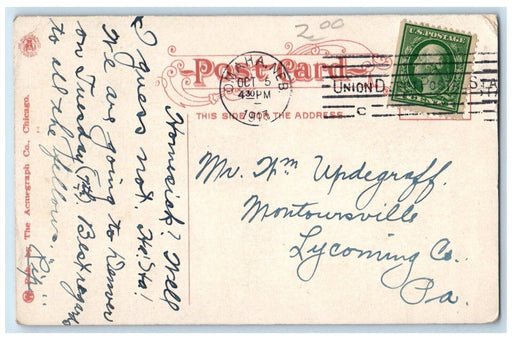 2.00
Post Card
THIS SIDE FOR THE ADDRESS.
OMAHA, NEB
OCT 5
4 30 PM
UNION
STA
U.S. POSTAGE
CENT
Homesick? Well
I guess not.
We are going to Denver
on Tuesday Best regards
to all the fellows
Mr. Wm Updegraff.
Montoursville
Lycoming Co.
Pa.
The Acmegraph Co., Chicago.